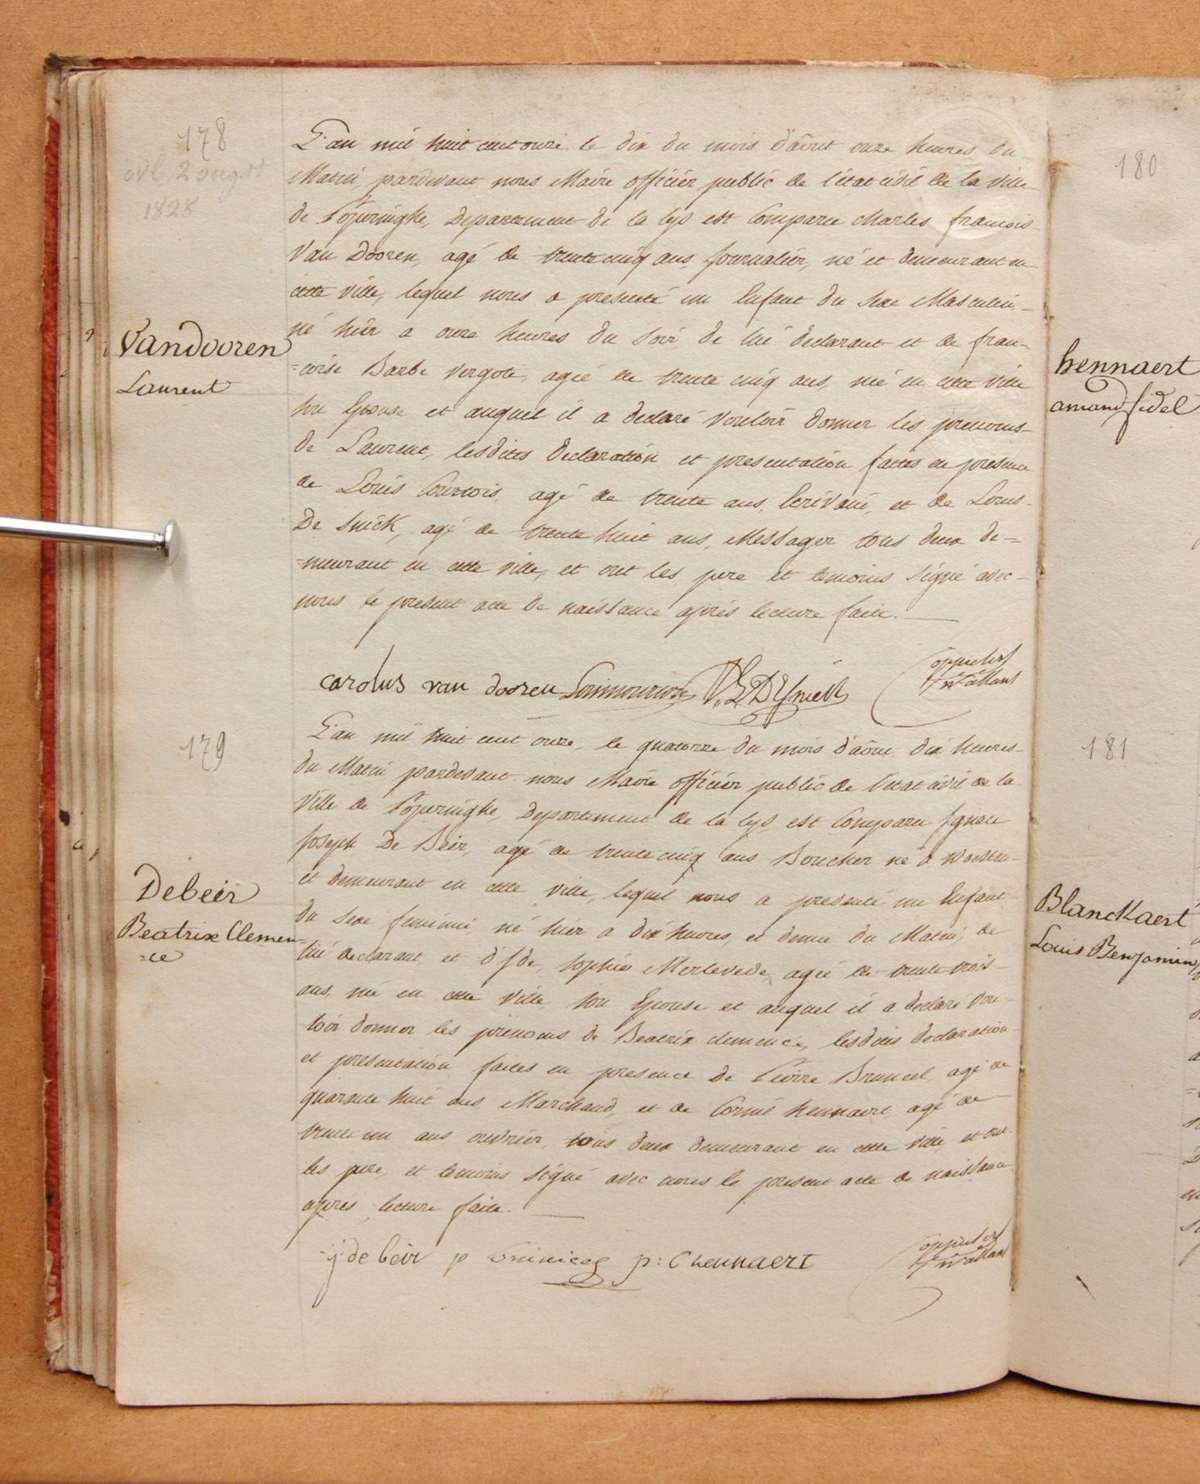 178
ovl. 2 augst
1828
L'an mil huit cent onze le dix du mois d'août onze heures du
Matin pardevant nous Maire officier public de l'état civil de la ville
de Poperinghe, Departement de la Lys est Comparu Charles françois
Van Dooren, agé de trente cinq ans, Journalier, né et demeurant en
cette ville, lequel nous a presenté un Enfant du Sexe Masculin,
né hier a onze heures du Soir de lui declarant et de fran-
=coise Barbe Vergote, agée de trente cinq ans, née en cette ville
son Epouse et auquel il a declaré Vouloir donner les prenoms
de Laurent, lesdites declaration et presentation faites en presence
de Louis Courtois, agé de trente ans, Ecrivain, et de Louis
De Snick, agé de trente huit ans, Messager tous deux de=
=meurant en cette ville, et ont les pere et temoins signé avec
nous le present acte de naissance après lecture faite.
Vandooren
Laurent
carolus van dooren
179
L'an mil huit cent onze, le quatorze du mois d'août dix heures
du Matin pardevant nous Maire officier public de l'état civil de la
Ville de Poperinghe, Departement de la Lys est Comparu Ignace
Joseph De Beir, agé de trente cinq ans Boucher né a
et demeurant en cette ville, lequel nous a presenté un Enfant
du sexe feminin, né hier a dix heures, et demie du Matin, de
lui declarant et d' Sophie Merlevede, agée de trente trois
ans, née en cette Ville son Epouse et auquel il a declaré vou-
loir donner les prenoms de Beatrix clemence, lesdites declaration
et presentation faites en presence de Pierre Bruneel, agé de
quarante huit ans Marchand, et de Corneil hennaert, agé de
trente un ans ouvrier, tous deux demeurant en cette ville, et ont
les pere, et temoins signé avec nous le present acte de naissance
après lecture faite.
Debeir
Beatrix Clemen=
=ce
j: de beir p: C hennaert
180
hennaert
amand fidel
181
Blanckaert
Louis Benjamin